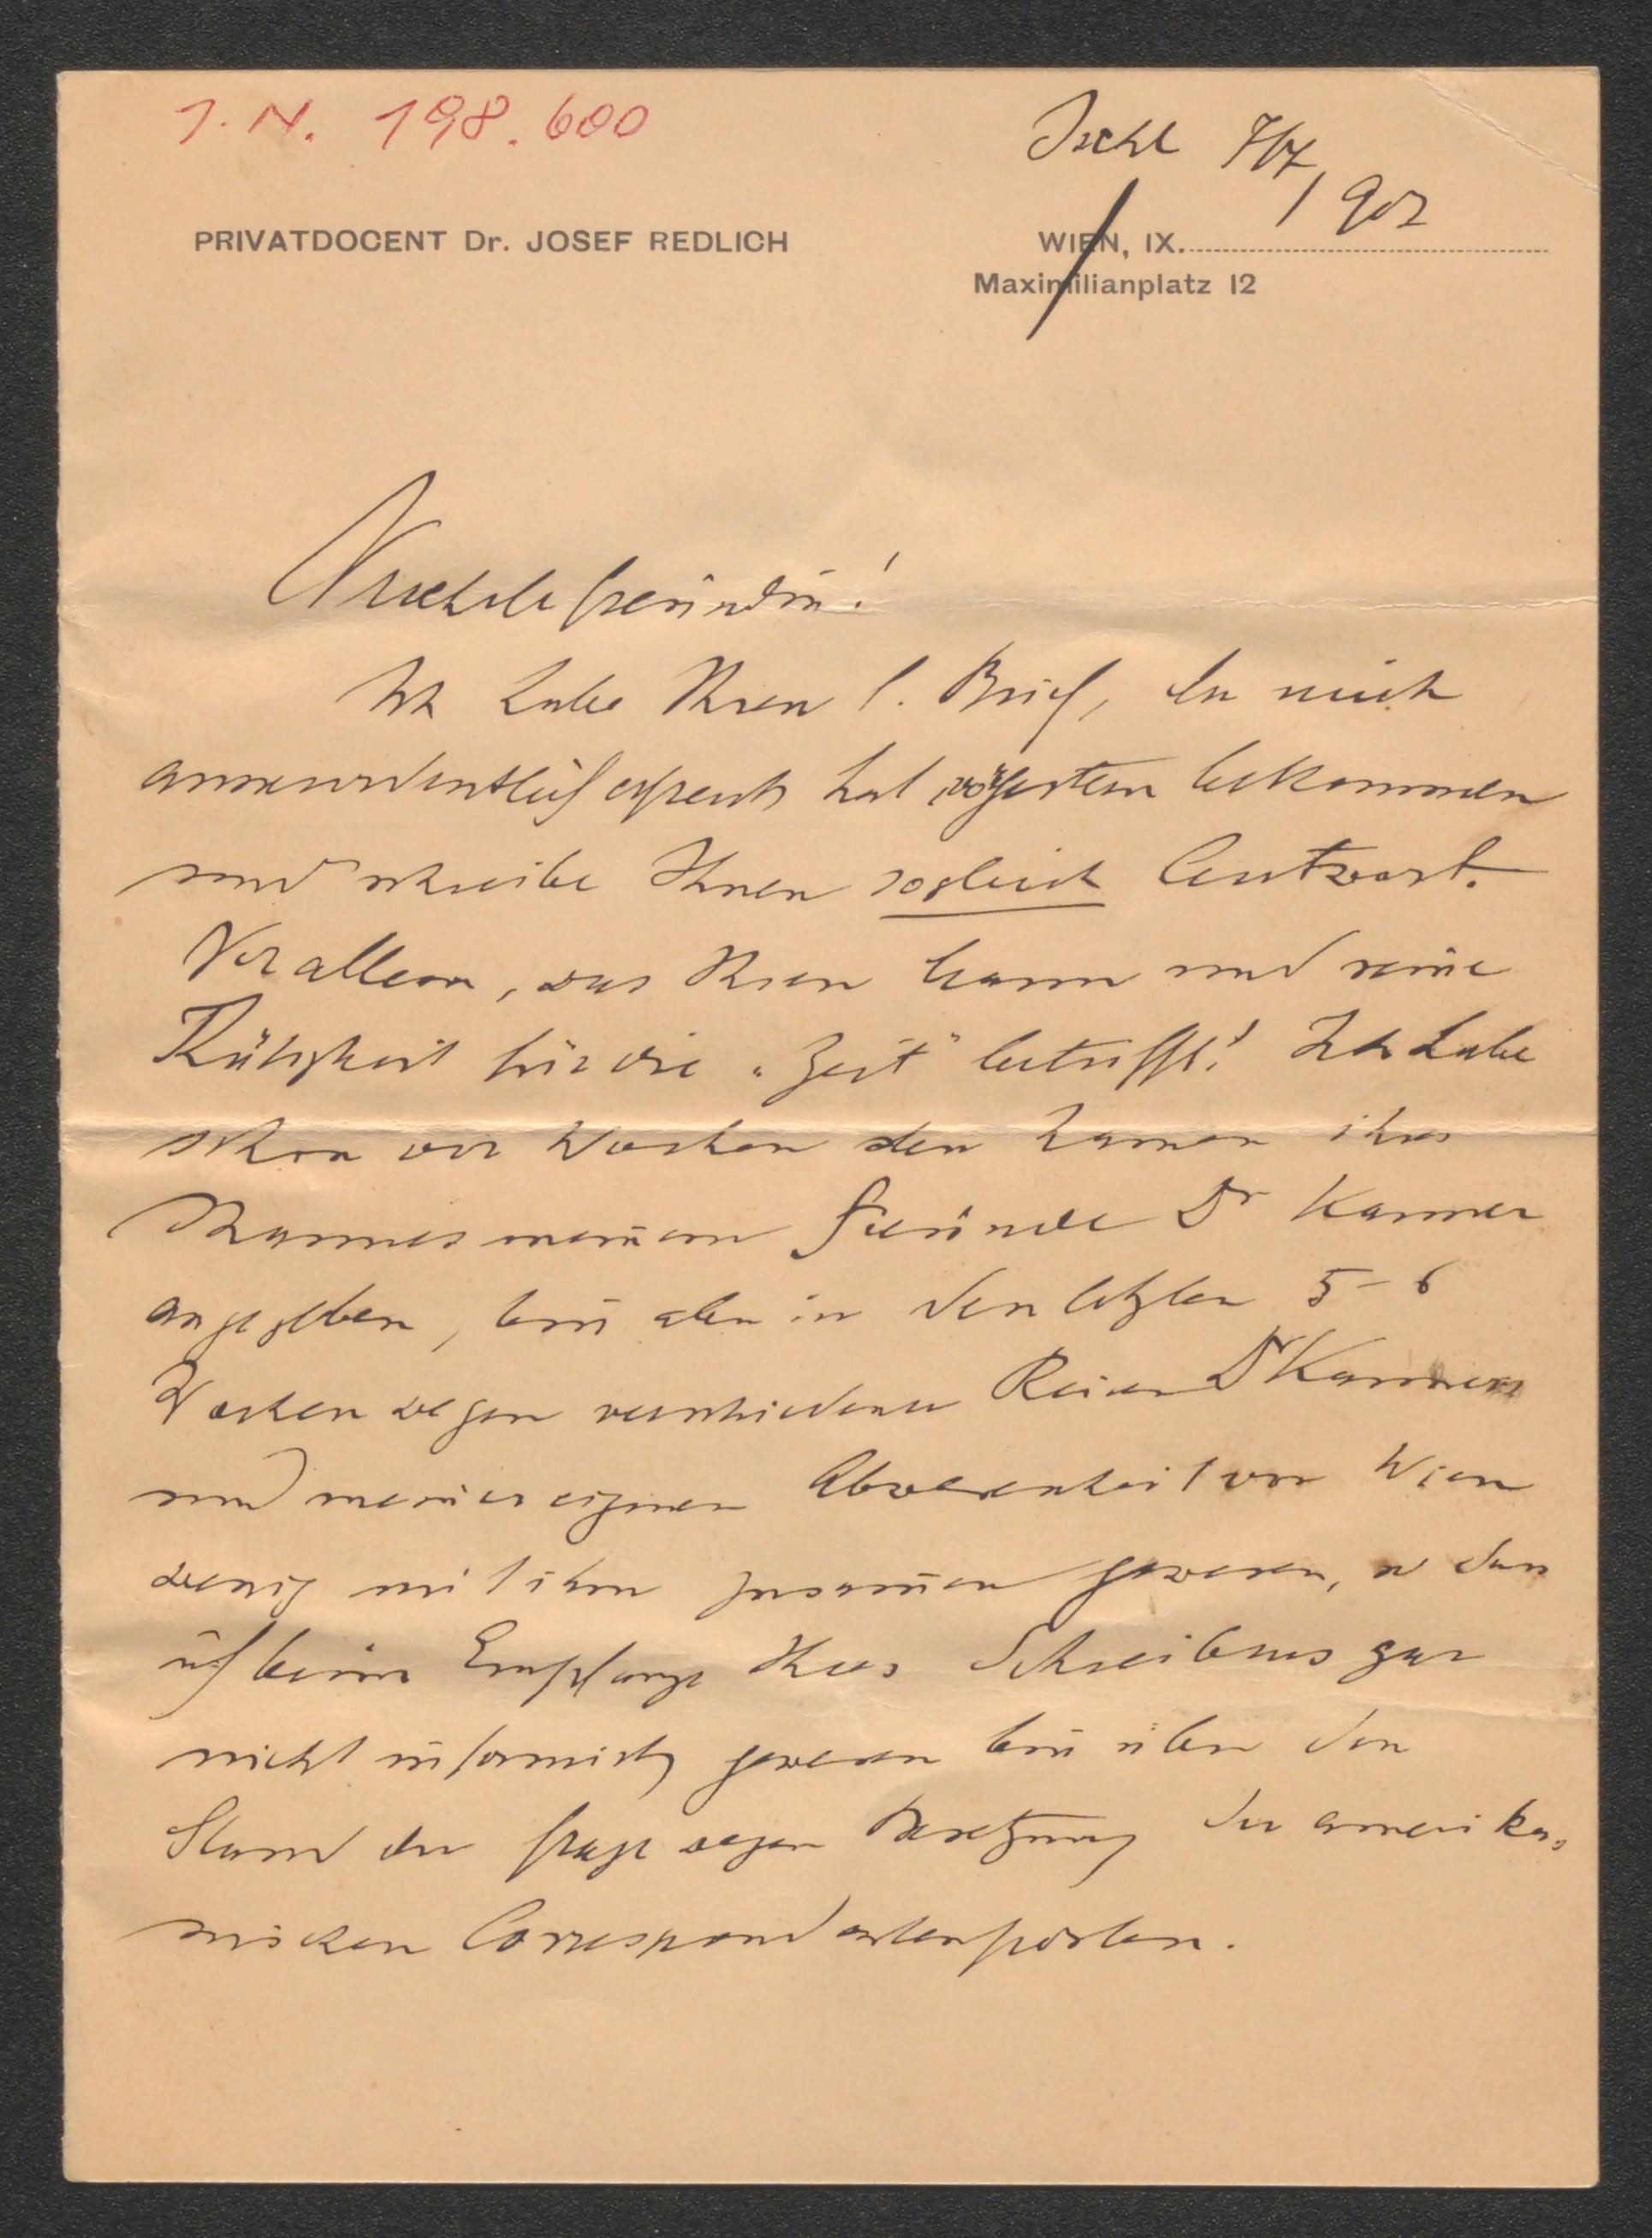 I. N. 198.600
Ischl 7/7
1902
PRIVATDOCENT Dr. JOSEF REDLICH
WIEN, IX.
Maximilianplatz 12
Verehrte Freundin!
Ich habe Ihren l. Brief, der mich
ausserordentlich erfreut hat, vorgestern bekommen
und schreibe Ihnen sogleich Antwort.
Vor allem, was Ihren Mann und seine
Tätigkeit für die „Zeit“ betrifft! Ich habe
schon vor Wochen den Namen ihres
Mannes meinem Freunde Dr Kanner
angegeben, bin aber in den letzten 5-6
Wochen wegen verschiedener Reisen Dr Kanners
und meiner eigenen Abwesenheit von Wien
wenig mit ihm zusam̄en gewesen, so dass
ich beim Empfange Ihres Schreibens gar
nicht informirt gewesen bin über den
Stand der Frage wegen Besetzung der amerika-
nischen Correspondentenposten.